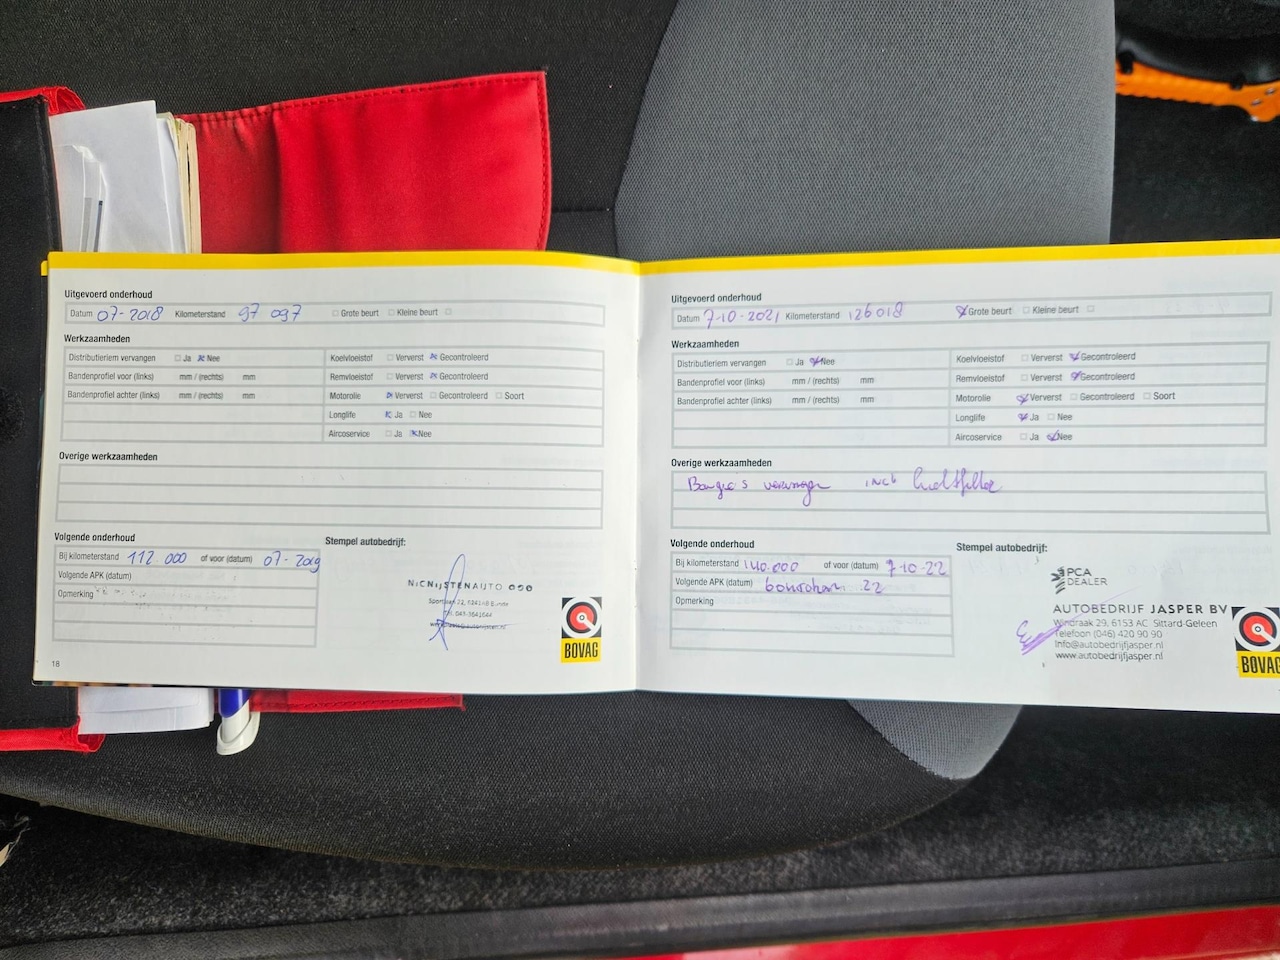 Uitgevoerd onderhoud
Datum 07-2018 Kilometerstand 97 097 Grote beurt Kleine beurt
Werkzaamheden
Distributieriem vervangen Ja Nee
Koelvloeistof Ververst Gecontroleerd
Bandenprofiel voor (links) mm / (rechts) mm
Remvloeistof Ververst Gecontroleerd
Bandenprofiel achter (links) mm / (rechts) mm
Motorolie Ververst Gecontroleerd Soort
Longlife Ja Nee
Aircoservice Ja Nee
Overige werkzaamheden
Volgende onderhoud
Stempel autobedrijf:
Bij kilometerstand 112 000 of voor (datum) 07-2019
Volgende APK (datum)
Opmerking
BOVAG
18
Uitgevoerd onderhoud
Datum 7-10-2021 Kilometerstand 126018 Grote beurt Kleine beurt
Werkzaamheden
Distributieriem vervangen Ja Nee
Koelvloeistof Ververst Gecontroleerd
Bandenprofiel voor (links) mm / (rechts) mm
Remvloeistof Ververst Gecontroleerd
Bandenprofiel achter (links) mm / (rechts) mm
Motorolie Ververst Gecontroleerd Soort
Longlife Ja Nee
Aircoservice Ja Nee
Overige werkzaamheden
incl luchtfilter
Volgende onderhoud
Stempel autobedrijf:
Bij kilometerstand 140.000 of voor (datum) 7-10-22
Volgende APK (datum) 22
Opmerking
PCA
DEALER
AUTOBEDRIJF JASPER BV
Windraak 29, 6153 AC Sittard-Geleen
Telefoon (046) 420 90 90
Info@autobedrijfjasper.nl
www.autobedrijfjasper.nl
BOVAG